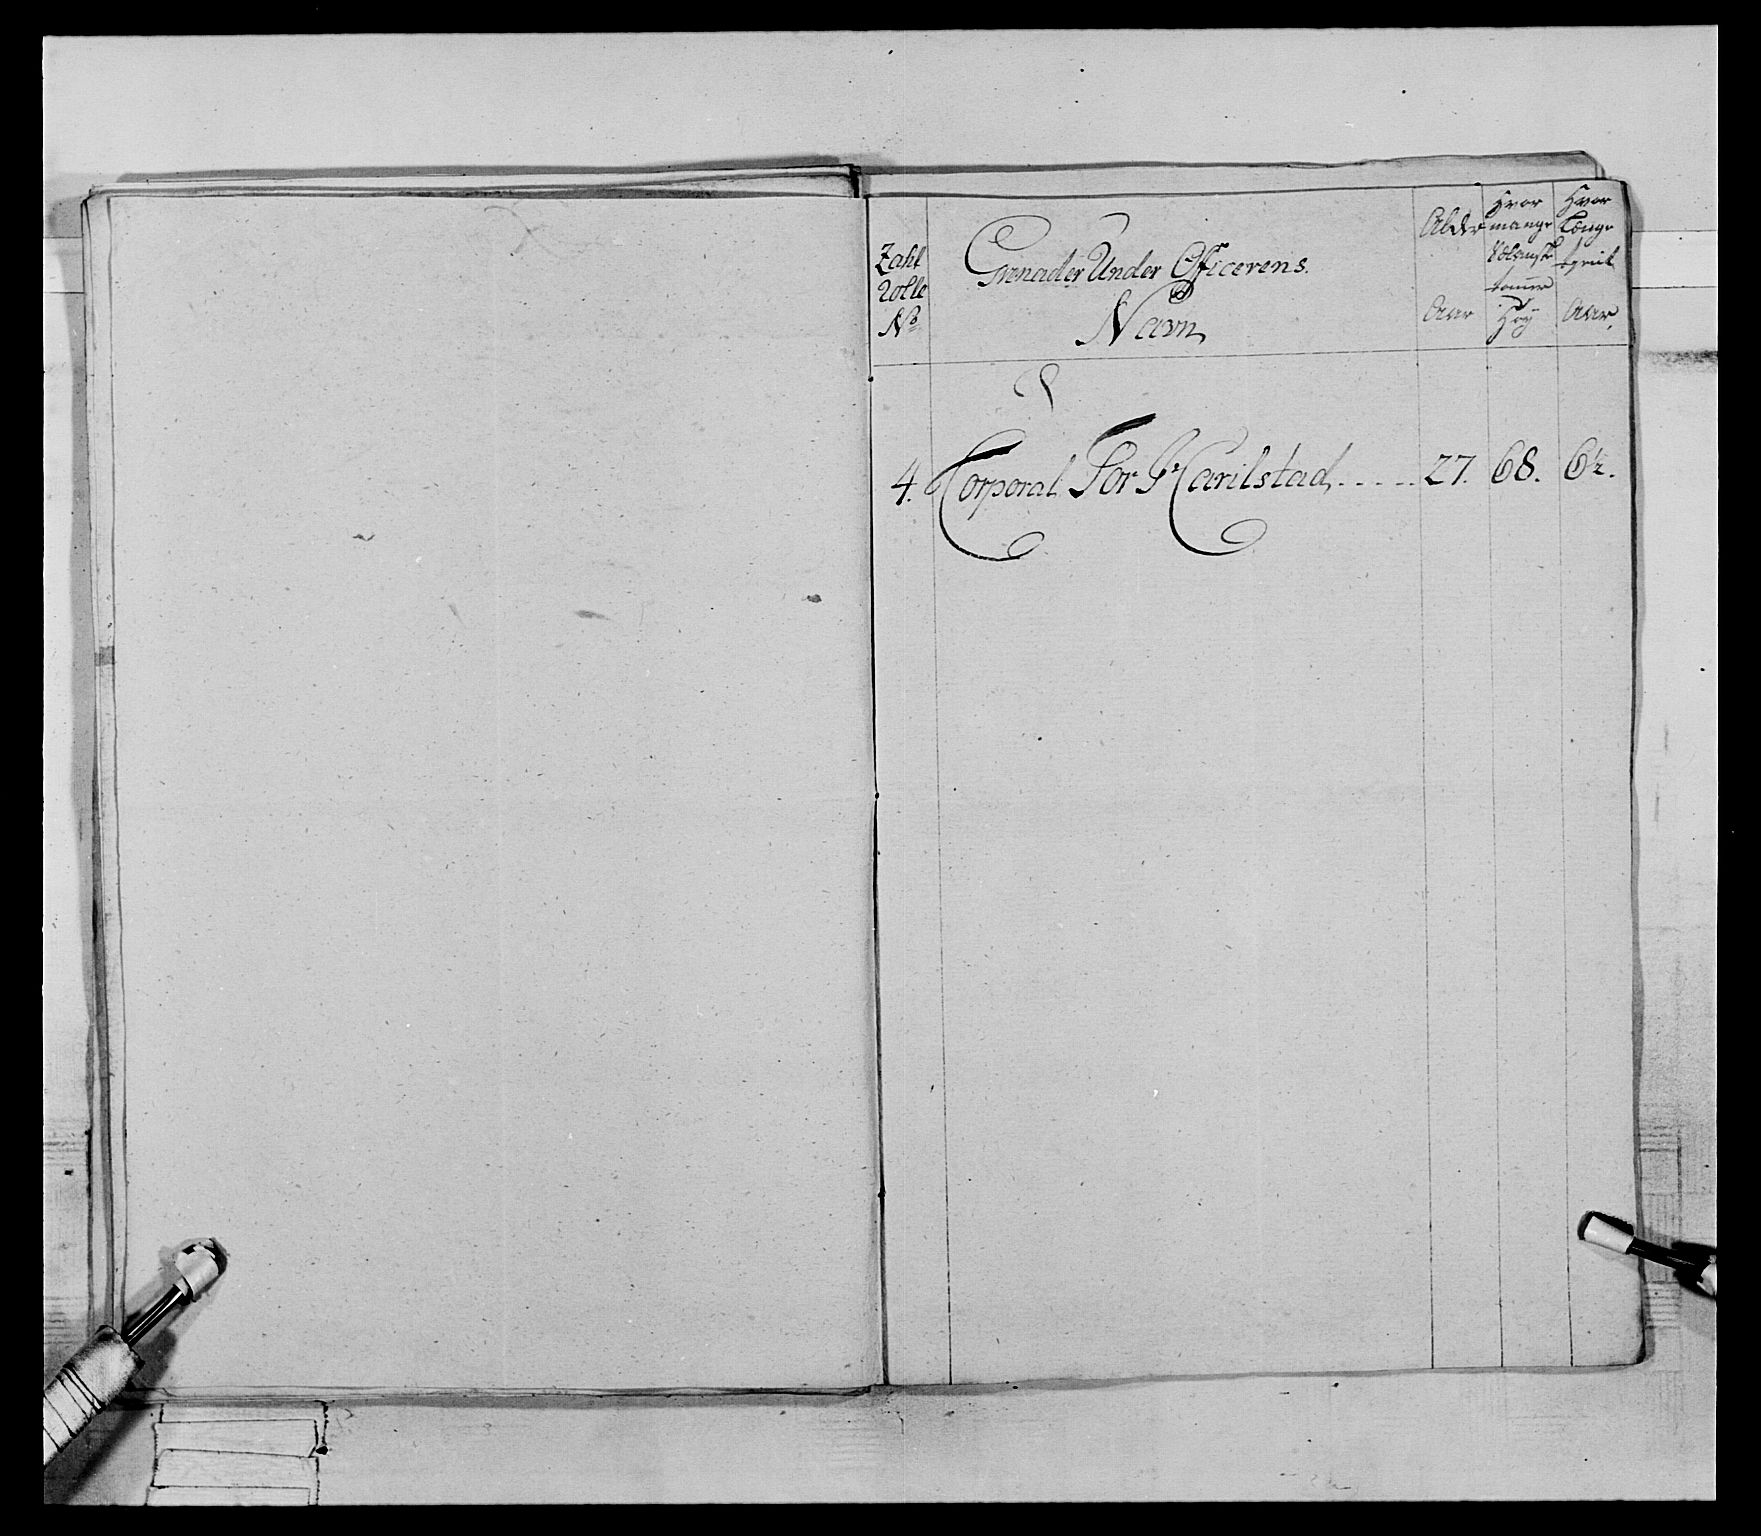 Zahl
Rolle
No
Grenader Under Officerens.
Navn
Alder
Aar
Hvor
mange
tomer
Høy
Hvor
længe
tient
Aar.
4. Corporal Tor Carilstad..... 27. 68. 6½.